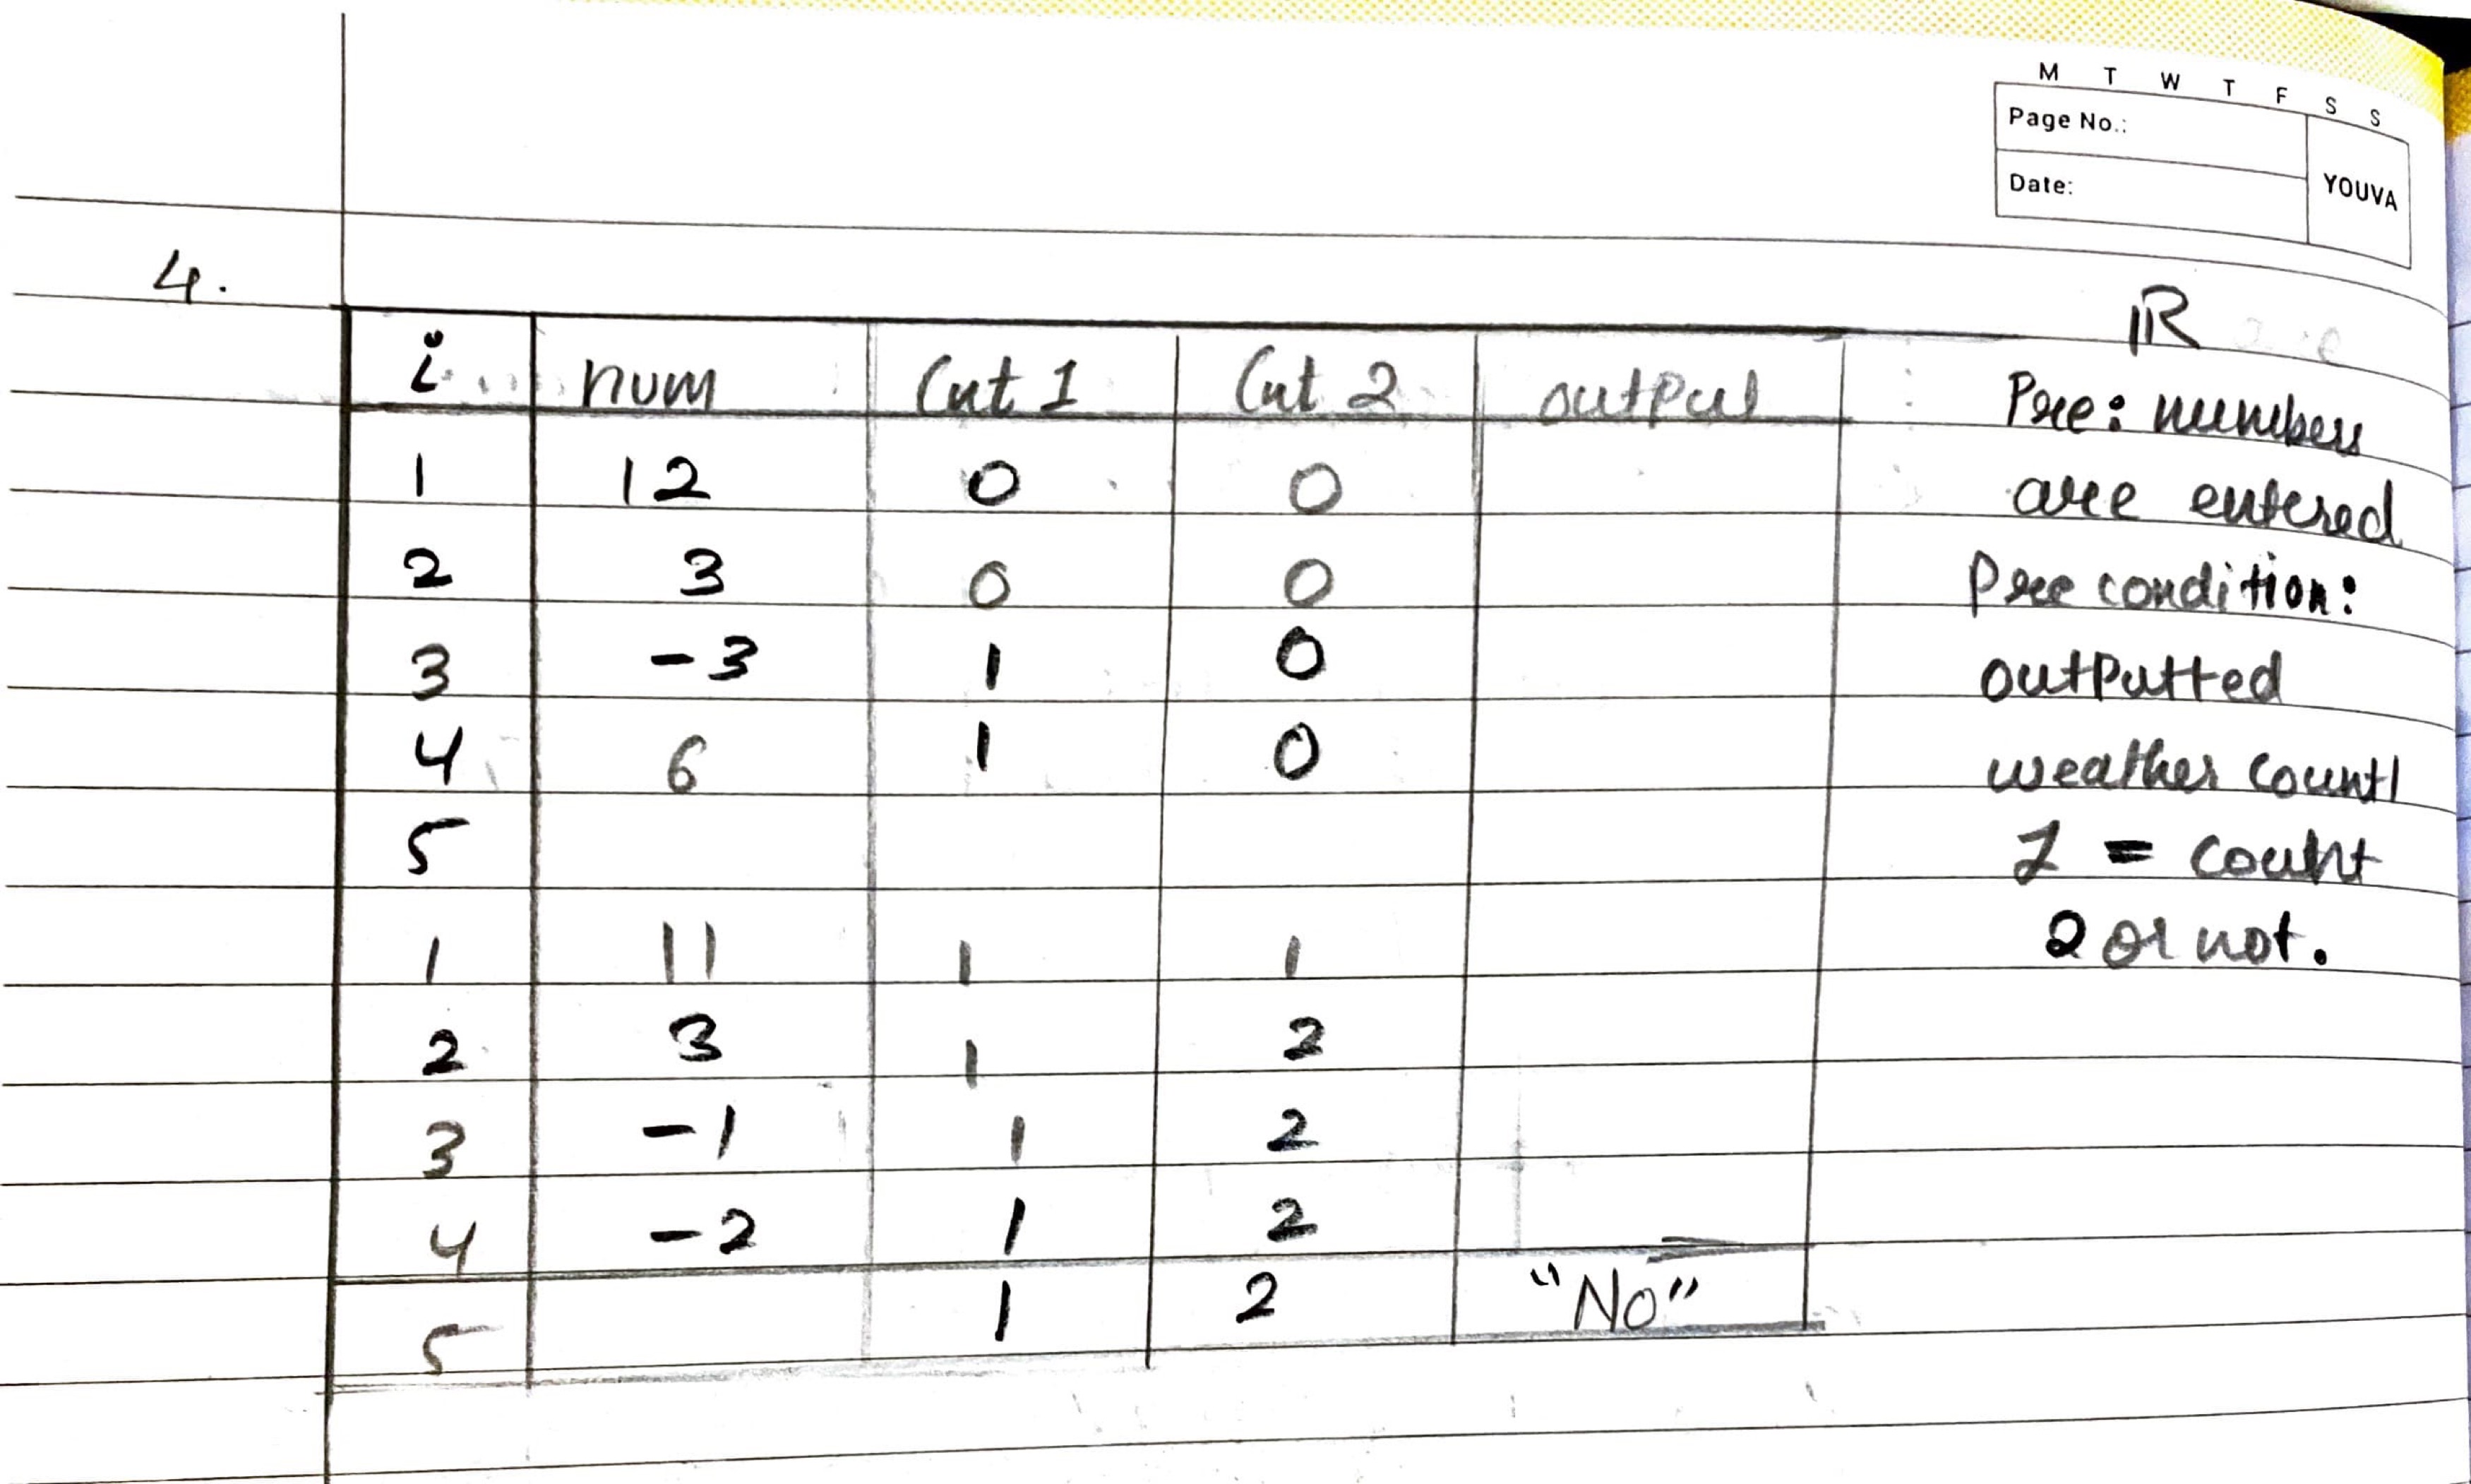 M T W T F S S
Page No.:
Date:
YOUVA
4.
i num Cnt 1 Cnt 2 output
1 12 0 0
2 3 0 0
3 -3 1 0
4 6 1 0
5
1 11 1 1
2 3 1 2
3 -1 1 2
4 -2 1 2
5 1 2 "No"
Pre: numbers
are entered
Pre condition:
outputted
weather count
1 = count
2 or not.